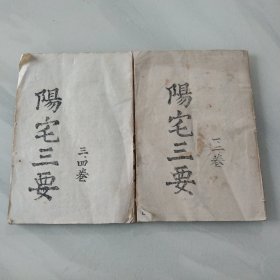 陽宅三要
一二卷
陽宅三要
三、四卷